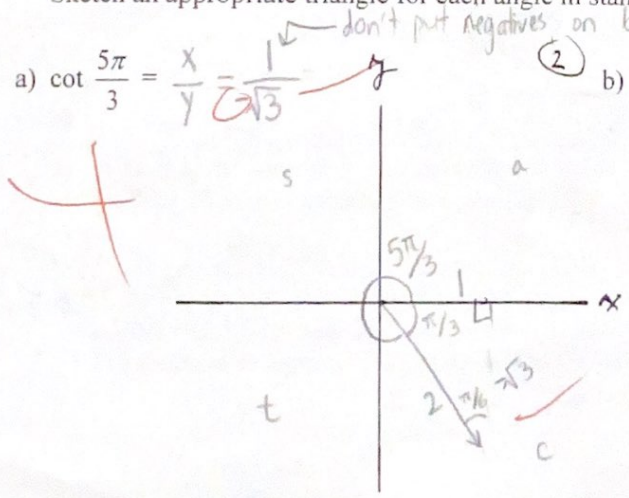 Sketch an appropriate triangle for each angle in stan
don't put negatives on
a) cot 5π/3 = x/y = 1/-√3
② b)
y
s a
5π/3
1
x
π/3
-√3
2 π/6
t
c